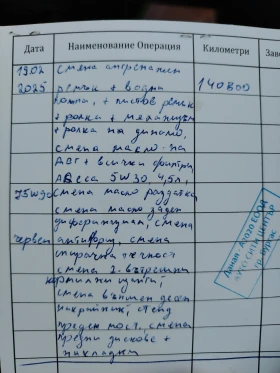 Дата Наименование Операция Километри Заве
19.02 смяна ангренажен
2025 ремък + водна 140800
помпа, + пистов ремък
+ ролка + механизъм
+ ролка на динамо,
смяна масло на
ДВГ + всички филтри,
5W30, 4,5л
75W90 смяна масло раздатка
смяна масло заден
диференциал, смяна
червен антифриз, смяна
спирачна течност
смяна 2
смяна външен десен
накрайник,
преден мост, смяна
предни дискове +
накладки
АУТО СИТИ ЦЕНТЪР
гр. Бургас